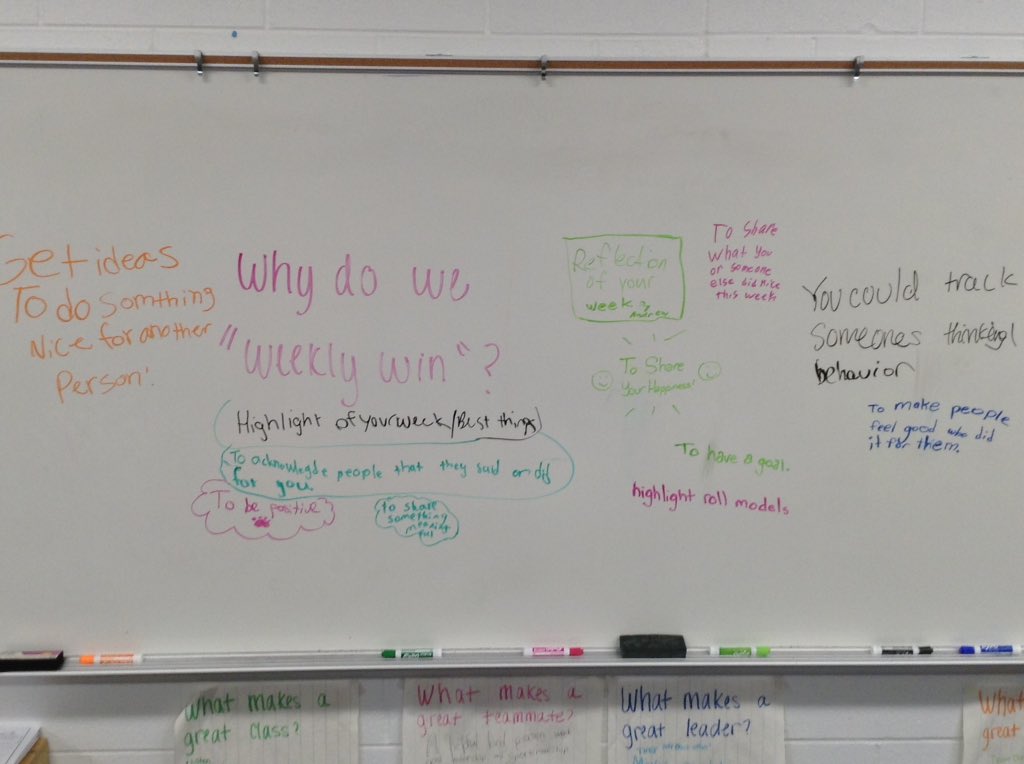 Get ideas
To do somthing
Nice for another
Person!
Why do we
"weekly win"?
Highlight of your week/Best things
To acknowlegde people that they said or did
for you.
To be positive
to share
something
meaning
ful
Reflection
of your
week By
To Share
What you
or someone
else did Nice
this week
To Share
Your Happiness!
To have a goal.
highlight roll models
You could track
Someones thinking/
behavior
To make people
feel good who did
it for them.
What makes a
great class?
What makes a
great teammate?
What makes a
great leader?
What
great